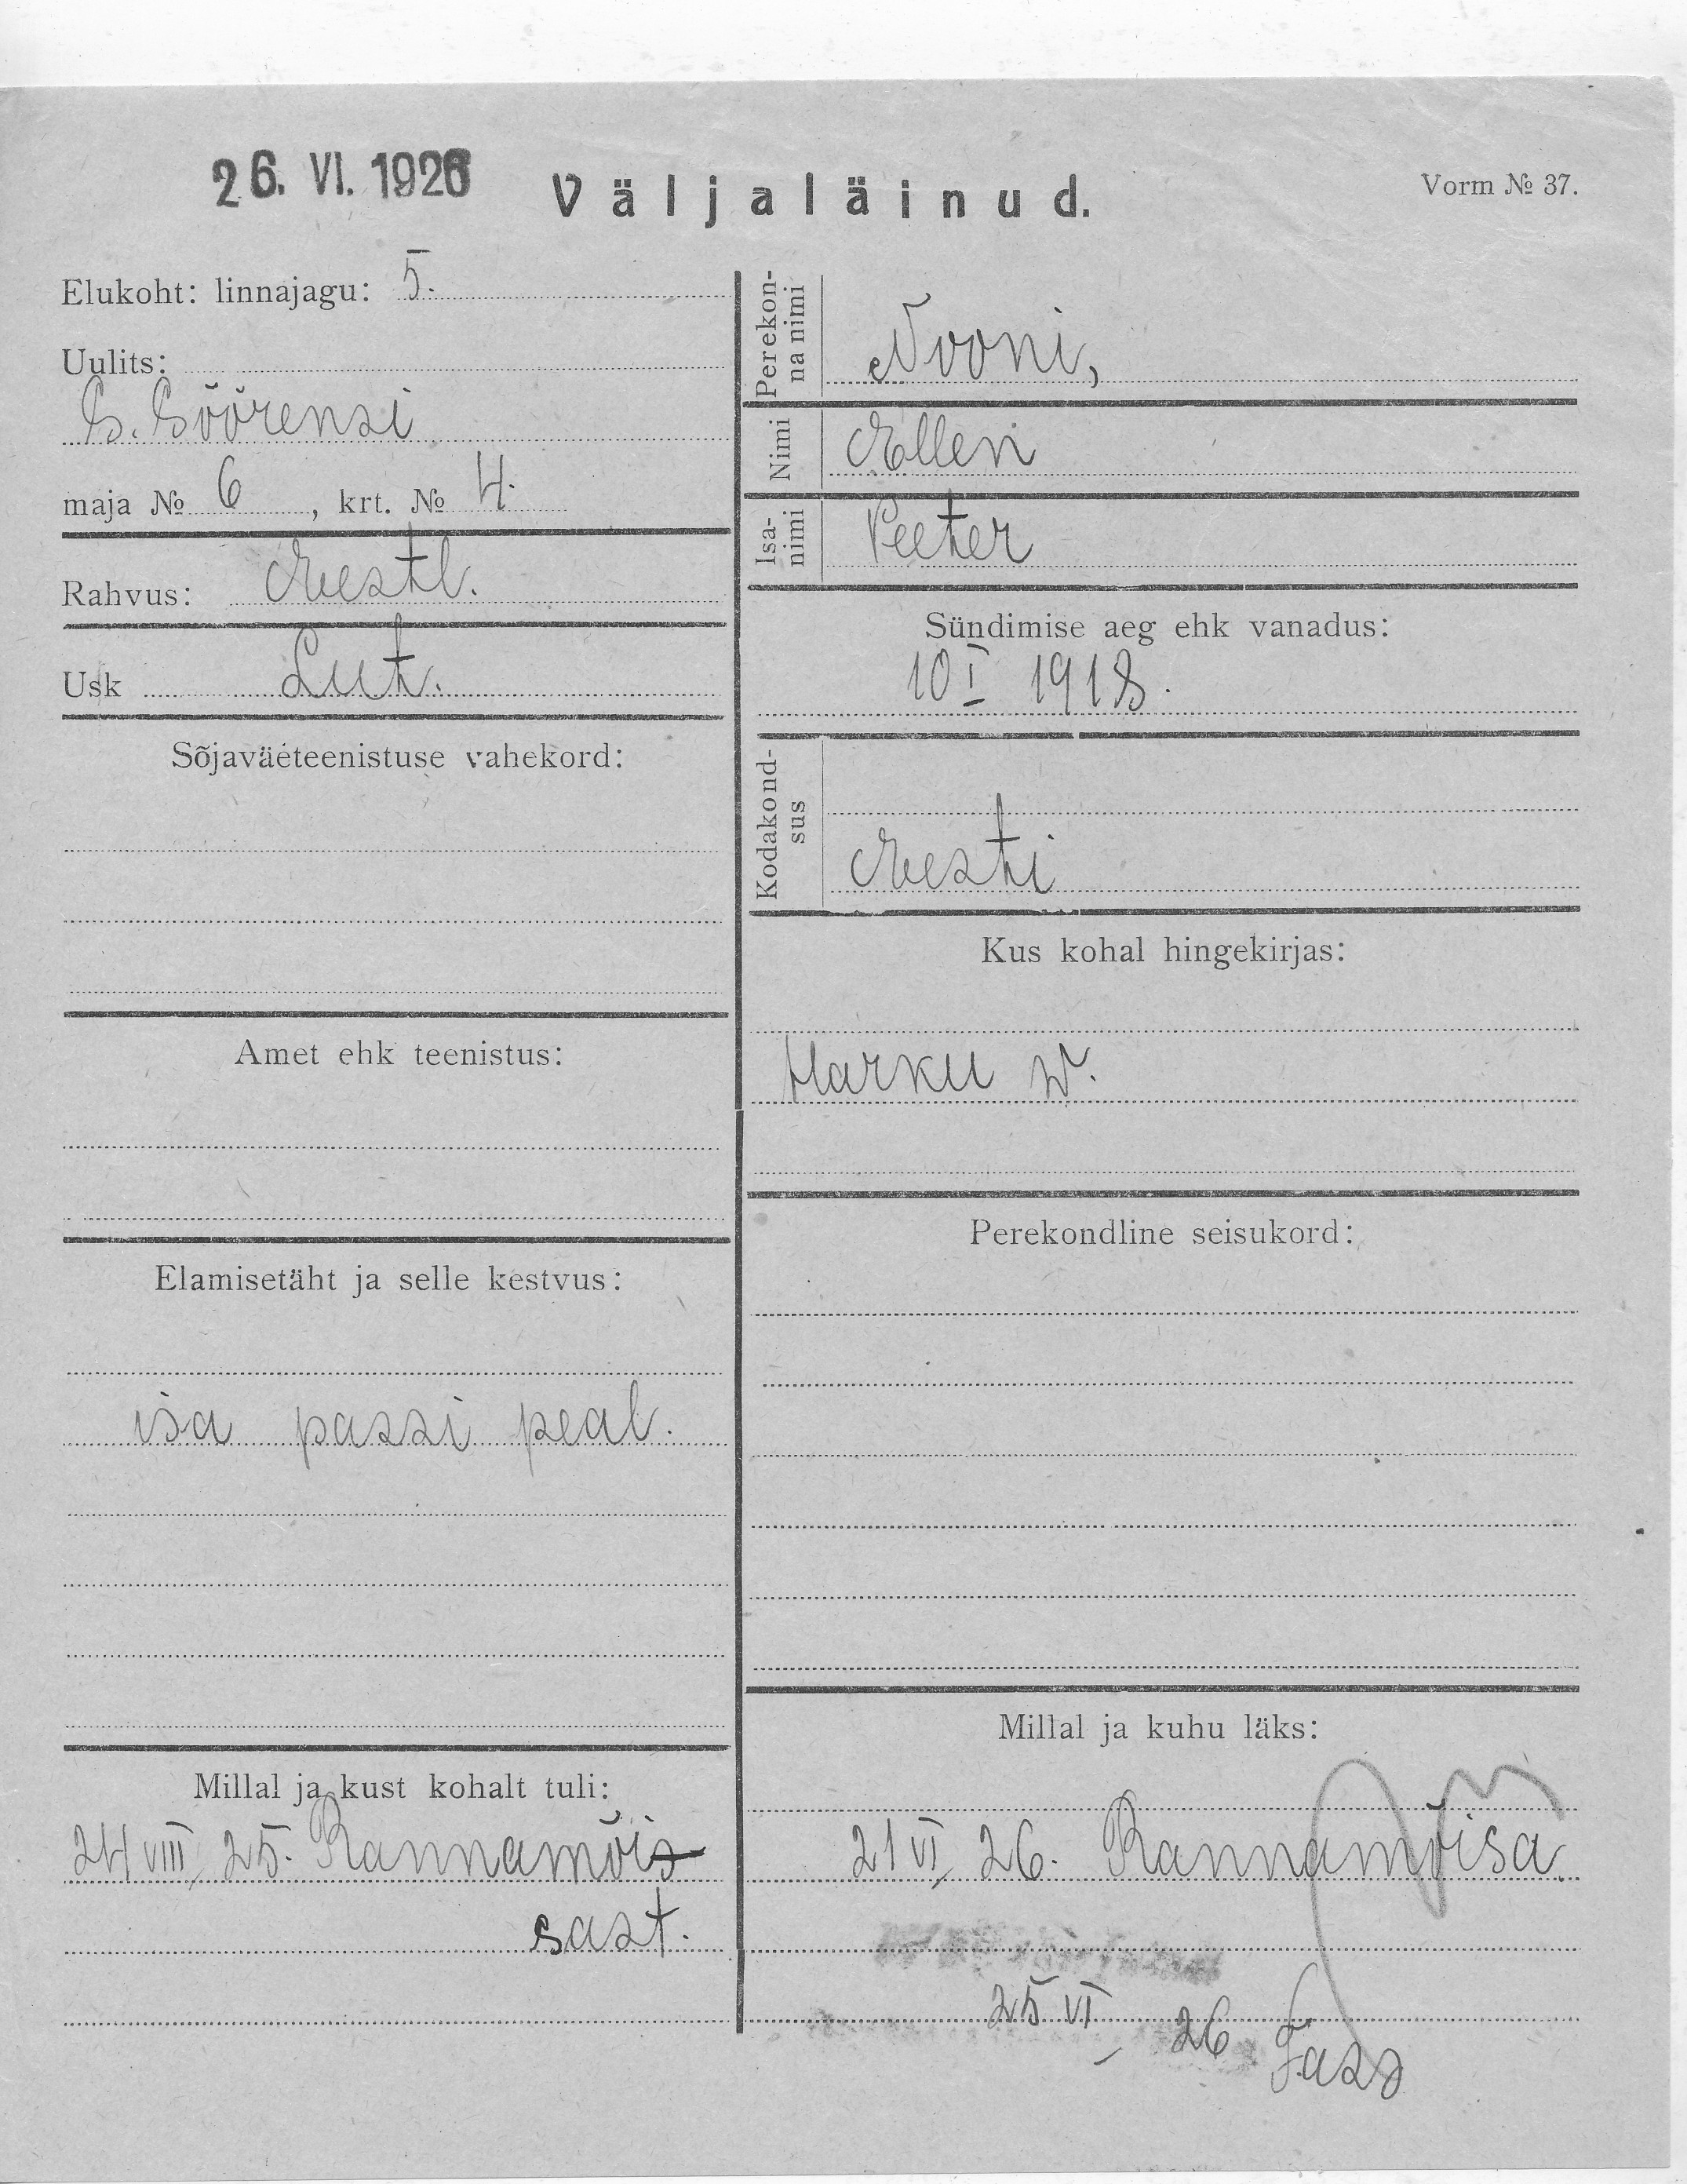 26. VI. 1926
Väljaläinud.
Vorm № 37.
Elukoht: linnajagu: 5.
Uulits:
S. Söörensi
maja № 6, krt. № 4.
Rahvus: Eestl.
Usk Lut.
Sõjaväeteenistuse vahekord:
Amet ehk teenistus:
Elamisetäht ja selle kestvus:
isa passi peal.
Millal ja kust kohalt tuli:
24 VIII 25. Rannamõis
sast.
Perekon-
na nimi
Nooni,
Nimi Ellen
Isa-
nimi
Peeter
Sündimise aeg ehk vanadus:
10 I 1918.
Kodakond-
sus
Eesti
Kus kohal hingekirjas:
Harku w.
Perekondline seisukord:
Millal ja kuhu läks:
21 VI 26. Rannamõisa.
25 VI 26